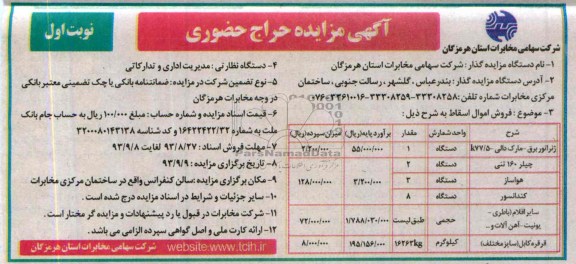 آگهی مزایده حراج حضوری
نوبت اول
شرکت سهامی مخابرات استان هرمزگان
۱- نام دستگاه مزایده گذار: شرکت سهامی مخابرات استان هرمزگان
۲- آدرس دستگاه مزایده گذار: بندرعباس . گلشهر . رسالت جنوبی . ساختمان
مرکزی مخابرات شماره تلفن: ۳۳۳۰۸۲۵۸-۳۳۳۰۸۲۵۹-
۳- موضوع: فروش اموال اسقاط به شرح ذیل:
شرح
واحد شمارش
مقدار
برآورد پایه (ریال)
میزان سپرده (ریال)
ژنراتور برق -مارک دالی
دستگاه
۱
۵۵/۰۰۰/۰۰۰
۲/۲۰۰/۰۰۰
چیلر ۱۶۰ تنی
دستگاه
۲
۳/۲۰۰/۰۰۰
۱۲۸/۰۰۰/۰۰۰
هواساز
دستگاه
۳
کندانسور
دستگاه
۸
سایر اقلام (باطری-
یونیت-آهن آلات و...
حجمی
طبق لیست
۱/۷۸۸/۰۳۰/۰۰۰
۷۲/۰۰۰/۰۰۰
قرقره کابل (سایز مختلف)
کیلوگرم
۱۶۲۶۳kg
۱۹۵/۱۵۶/۰۰۰
۸/۰۰۰/۰۰۰
۴- دستگاه نظارتی: مدیریت اداری و تدارکاتی
۵- نوع تضمین شرکت در مزایده: ضمانتنامه بانکی یا چک تضمینی معتبر بانکی
در وجه مخابرات هرمزگان
۶- قیمت اسناد مزایده و شماره حساب: مبلغ ۱۰۰/۰۰۰ ریال به حساب جام بانک
ملت به شماره ۱۶۴۲۲۴۲۲/۳۲ و کد شناسه ۳۲۰۰۰۸۰۱۴۳۱۳۸
۷- مهلت فروش اسناد: ۹۳/۸/۲۷ لغایت ۹۳/۹/۸
۸- تاریخ برگزاری مزایده: ۹۳/۹/۹
۹- مکان برگزاری مزایده: سالن کنفرانس واقع در ساختمان مرکزی مخابرات
۱۰- سایر جزئیات و شرایط در اسناد مزایده درج شده است.
۱۱- شرکت مخابرات در قبول یا رد پیشنهادات و مزایده گر مختار است.
۱۲- ارائه کارت ملی و اصل گواهی سپرده الزامی می باشد.
شرکت سهامی مخابرات استان هرمزگان website:www.tcih.ir